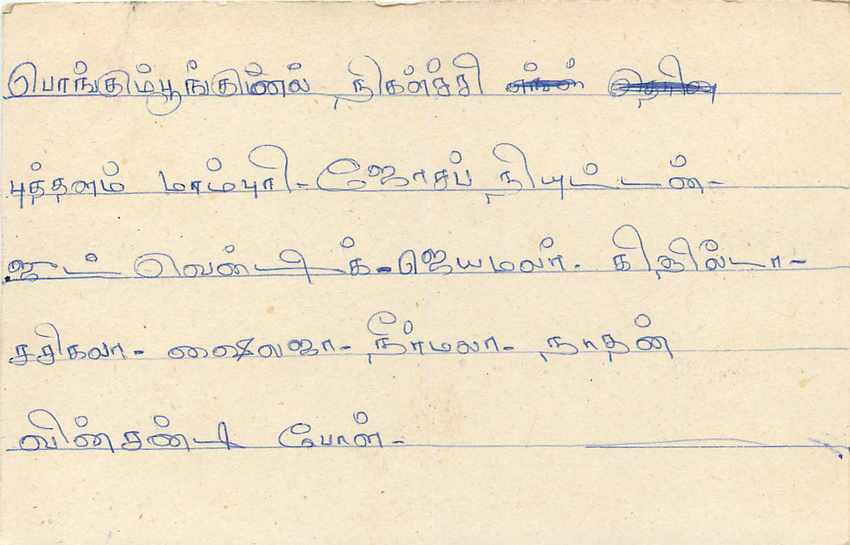 பொங்கும்பூங்குனில் நிகள்ச்சி
புத்தளம் மாம்புரி - ஜோசப் நியுட்டன் -
ஜுட் வென்டிக் - ஜெயமலர். கிதில்டா -
சசிகலா - ஷைலஜா - நீர்மலா - நாதன்
வின்சன்டி போள் -